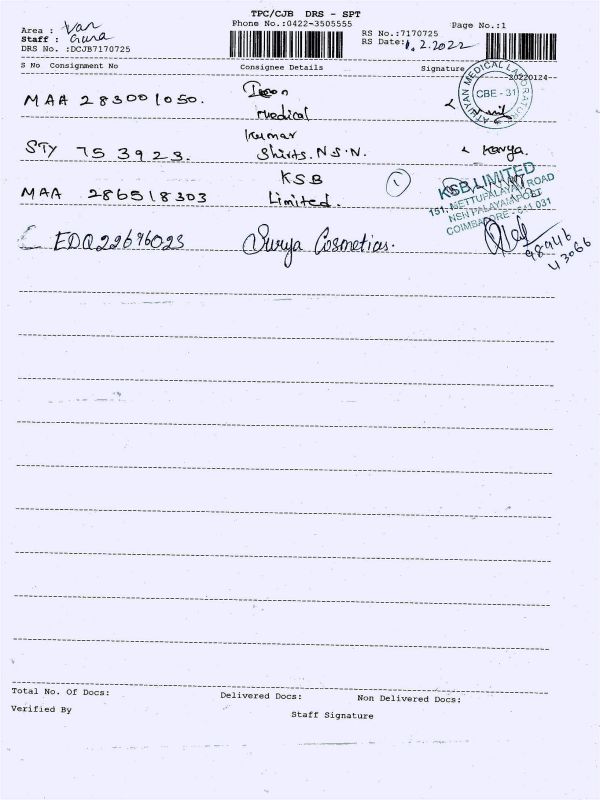 TPC/CJB DRS - SPT
Phone No.:0422-3505555
Page No.:1
Area : Van
Staff : Guna
DRS No. :DCJB7170725
RS No.:7170725
RS Date: 1.2.2022
S No Consignment No Consignee Details Signature 20220124--
MAA 283001050. Medical
CBE - 31
STY 753923. Kumar Shirts. N.S.N. Kavya.
MAA 286518303 KSB Limited. 1
KSB LIMITED
151, METTUPALAYAM ROAD
NSN PALAYAM POST
COIMBATORE - 641 031
EDQ22696023 Surya Cosmetics.
98946
43066
Total No. Of Docs: Delivered Docs: Non Delivered Docs:
Verified By Staff Signature